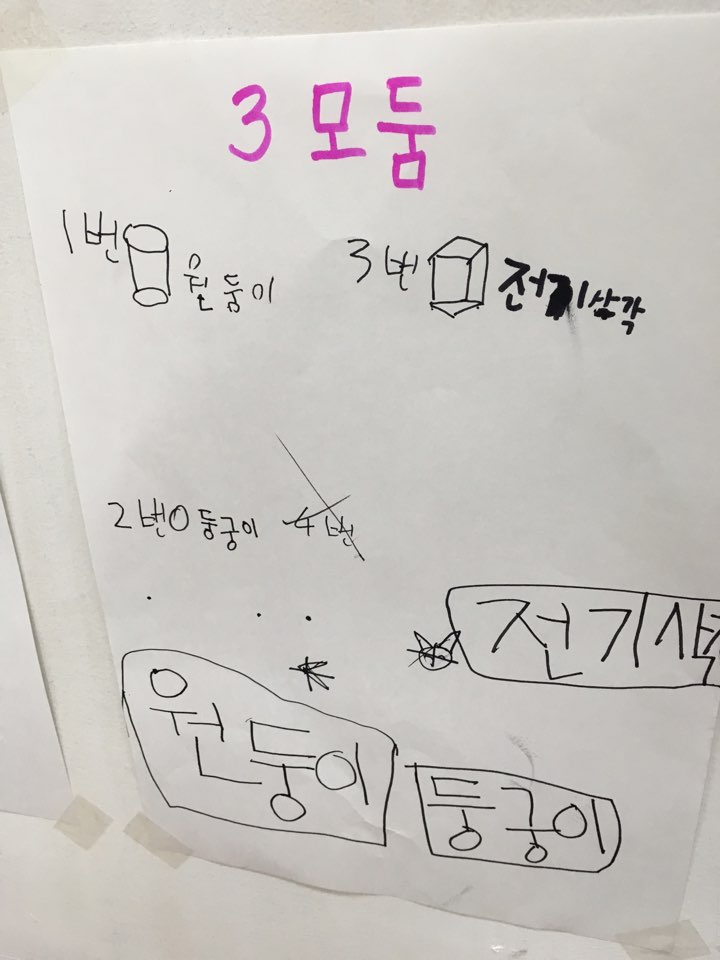 3 모둠
1번 원둥이
3번 전기삼각
2번 둥궁이
4번
전기삼각
원둥이
둥궁이